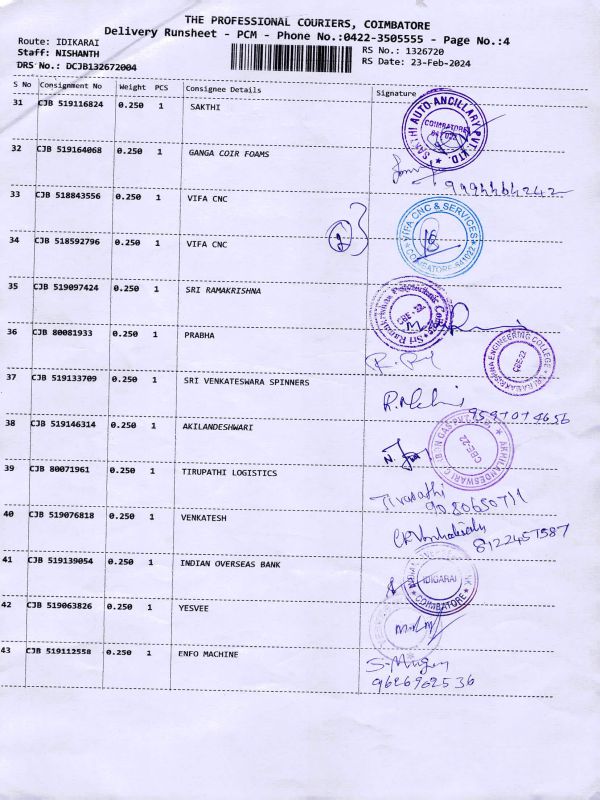 THE PROFESSIONAL COURIERS, COIMBATORE
Delivery Runsheet - PCM - Phone No.:0422-3505555 - Page No.:4
Route: IDIKARAI
Staff: NISHANTH
DRS No.: DCJB132672004
RS No.: 1326720
RS Date: 23-Feb-2024
S No Consignment No Weight PCS Consignee Details Signature
31 CJB 519116824 0.250 1 SAKTHI
SAKTHI AUTO ANCILLARY PVT. LTD.
COIMBATORE
641 022
32 CJB 519164068 0.250 1 GANGA COIR FOAMS
9994464242
33 CJB 518843556 0.250 1 VIFA CNC
VIFA CNC & SERVICES
COIMBATORE-641022
34 CJB 518592796 0.250 1 VIFA CNC
35 CJB 519097424 0.250 1 SRI RAMAKRISHNA
CBE - 22
36 CJB 80081933 0.250 1 PRABHA
SRI RAMAKRISHNA ENGINEERING COLLEGE
CBE-22
37 CJB 519133709 0.250 1 SRI VENKATESWARA SPINNERS
9597074656
38 CJB 519146314 0.250 1 AKILANDESHWARI
CBE-22
39 CJB 80071961 0.250 1 TIRUPATHI LOGISTICS
Tirupathi
9080650711
40 CJB 519076818 0.250 1 VENKATESH
8122457587
41 CJB 519139054 0.250 1 INDIAN OVERSEAS BANK
IDIGARAI
COIMBATORE
42 CJB 519063826 0.250 1 YESVEE
43 CJB 519112558 0.250 1 ENFO MACHINE
9626962536